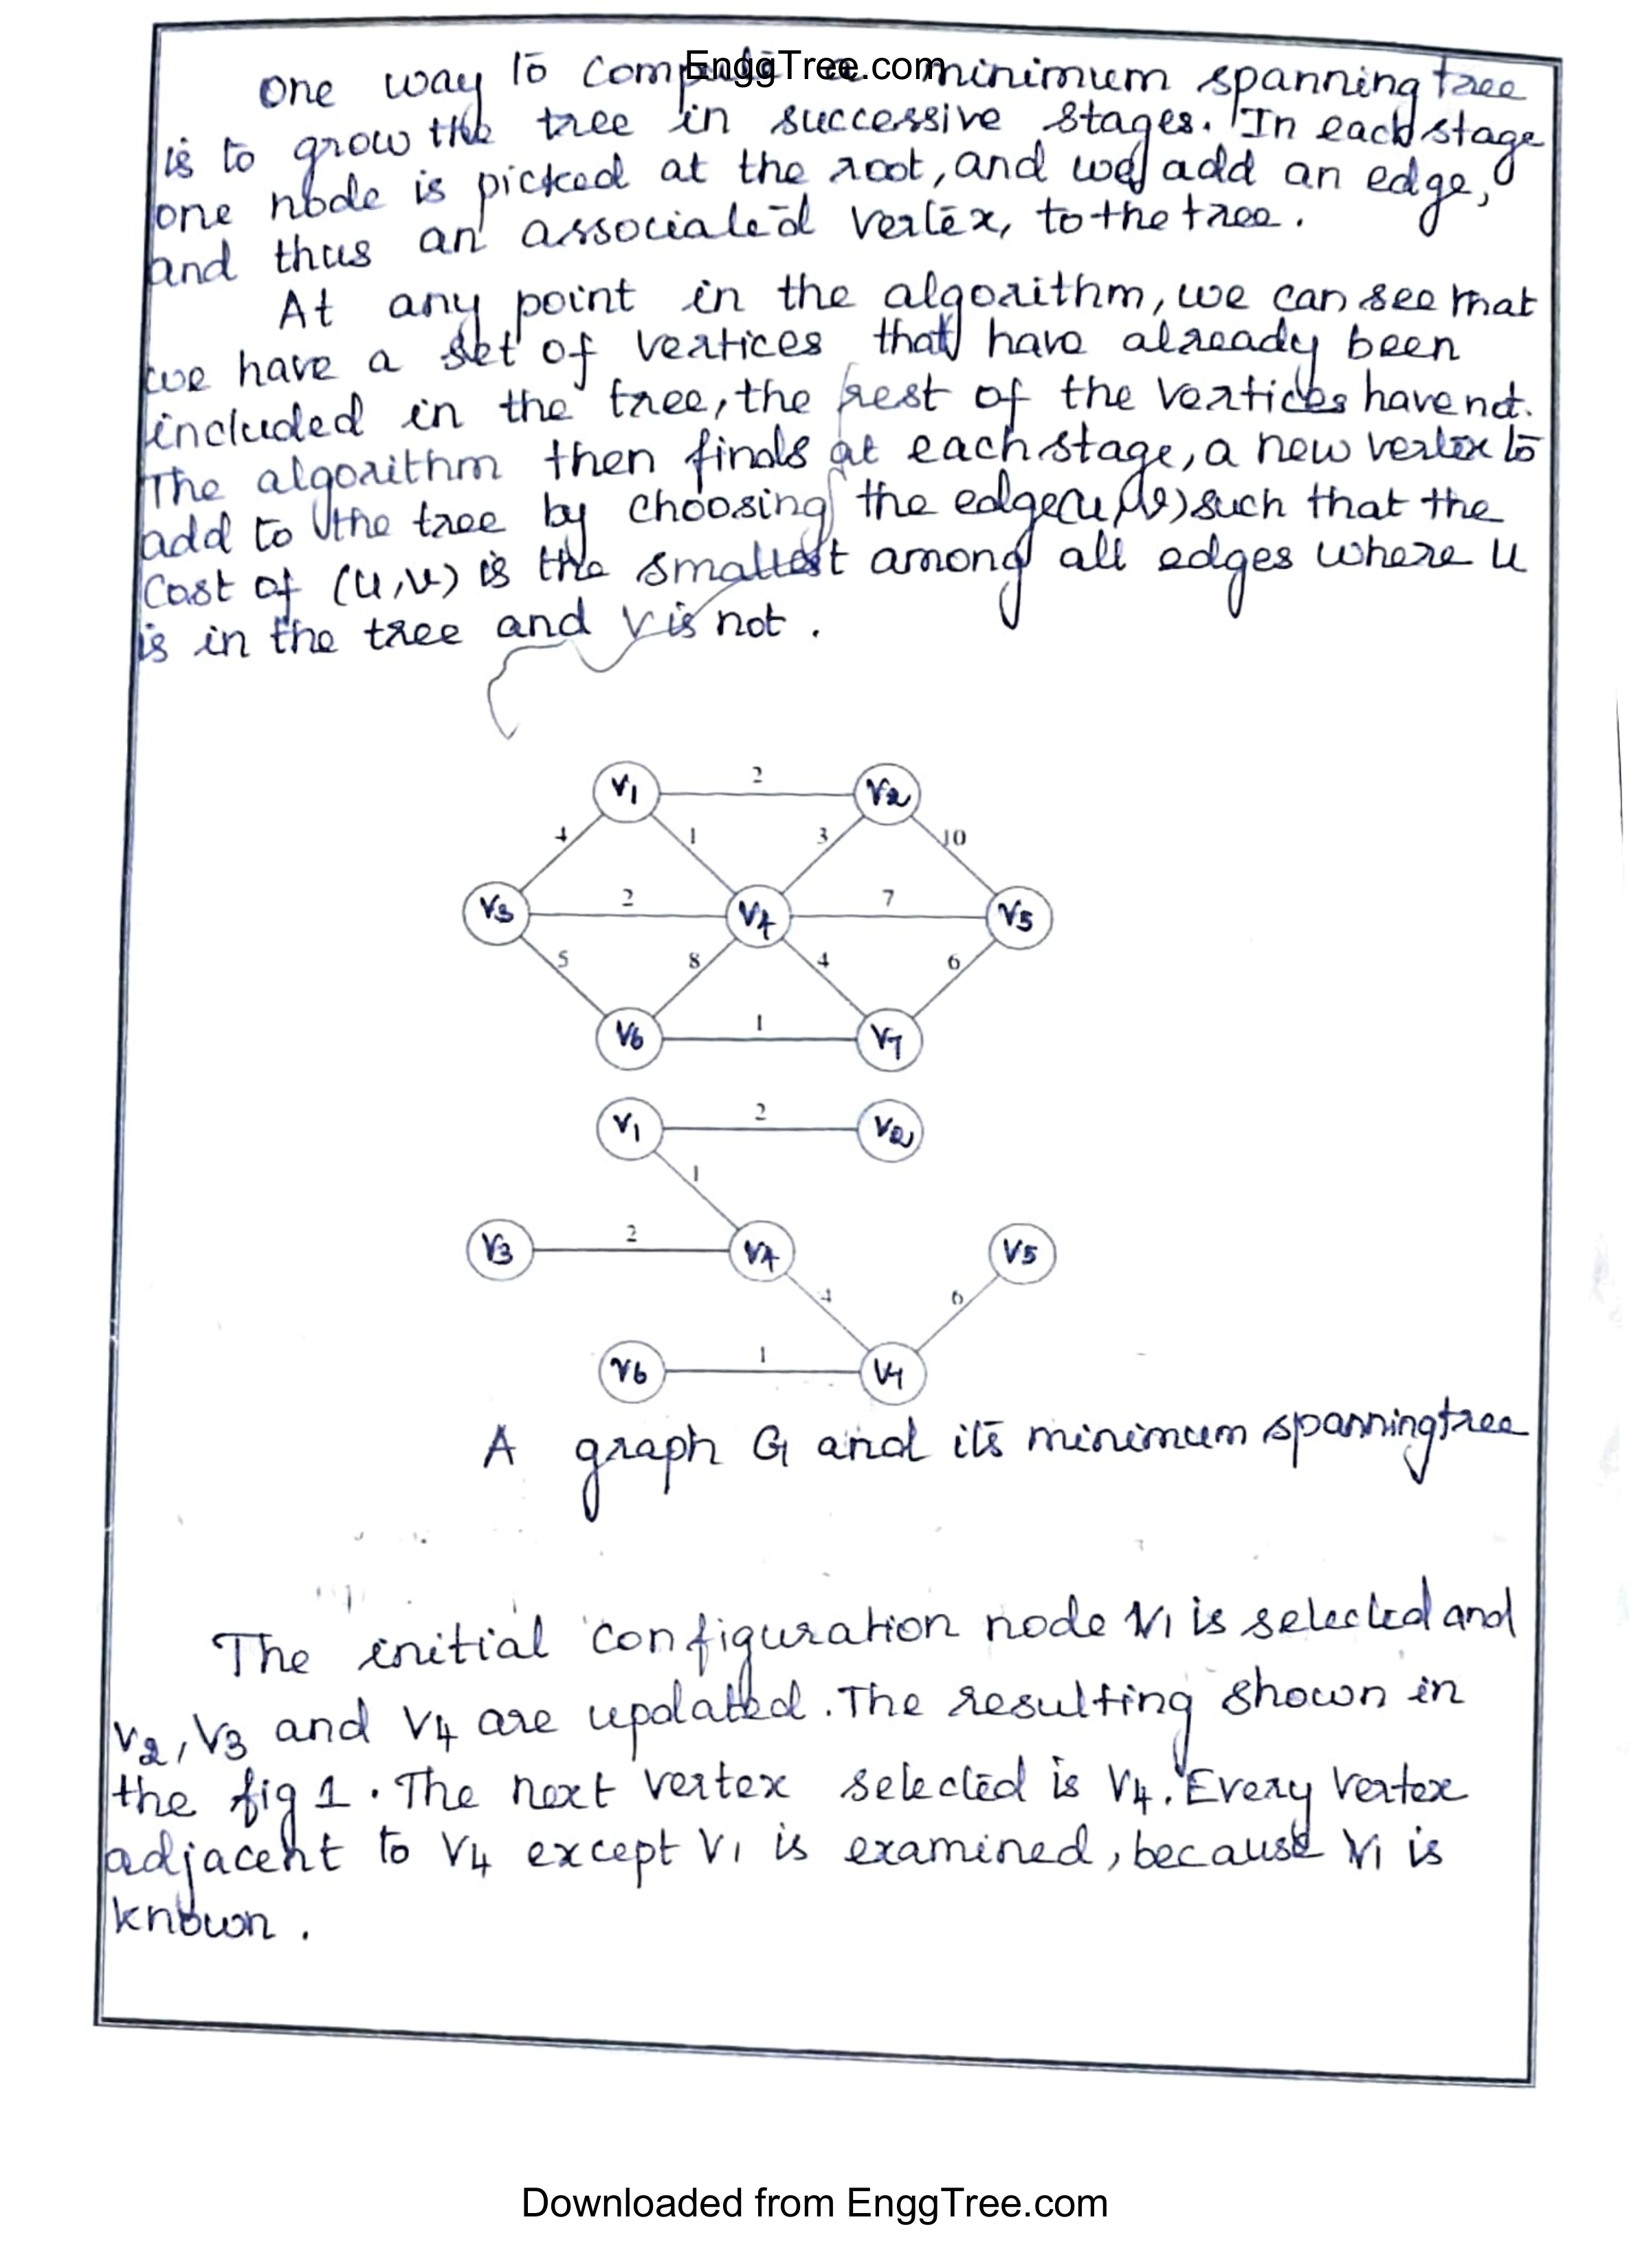 EnggTree.com
One way to compute a minimum spanning tree
is to grow the tree in successive stages. In each stage
one node is picked at the root, and we add an edge,
and thus an associated vertex, to the tree.
At any point in the algorithm, we can see that
we have a set of vertices that have already been
included in the tree, the rest of the vertices have not.
The algorithm then finds at each stage, a new vertex to
add to the tree by choosing the edge(u,v) such that the
Cost of (u,v) is the smallest among all edges where u
is in the tree and v is not.
V1 2 V2
4 1 3 10
V3 2 V4 7 V5
5 8 4 6
V6 1 V7
V1 2 V2
1
V3 2 V4 V5
4 6
V6 1 V7
A graph G and its minimum spanning tree
The initial configuration node V1 is selected and
V2, V3 and V4 are updated. The resulting shown in
the fig 1. The next vertex selected is V4. Every vertex
adjacent to V4 except V1 is examined, because V1 is
known.
Downloaded from EnggTree.com